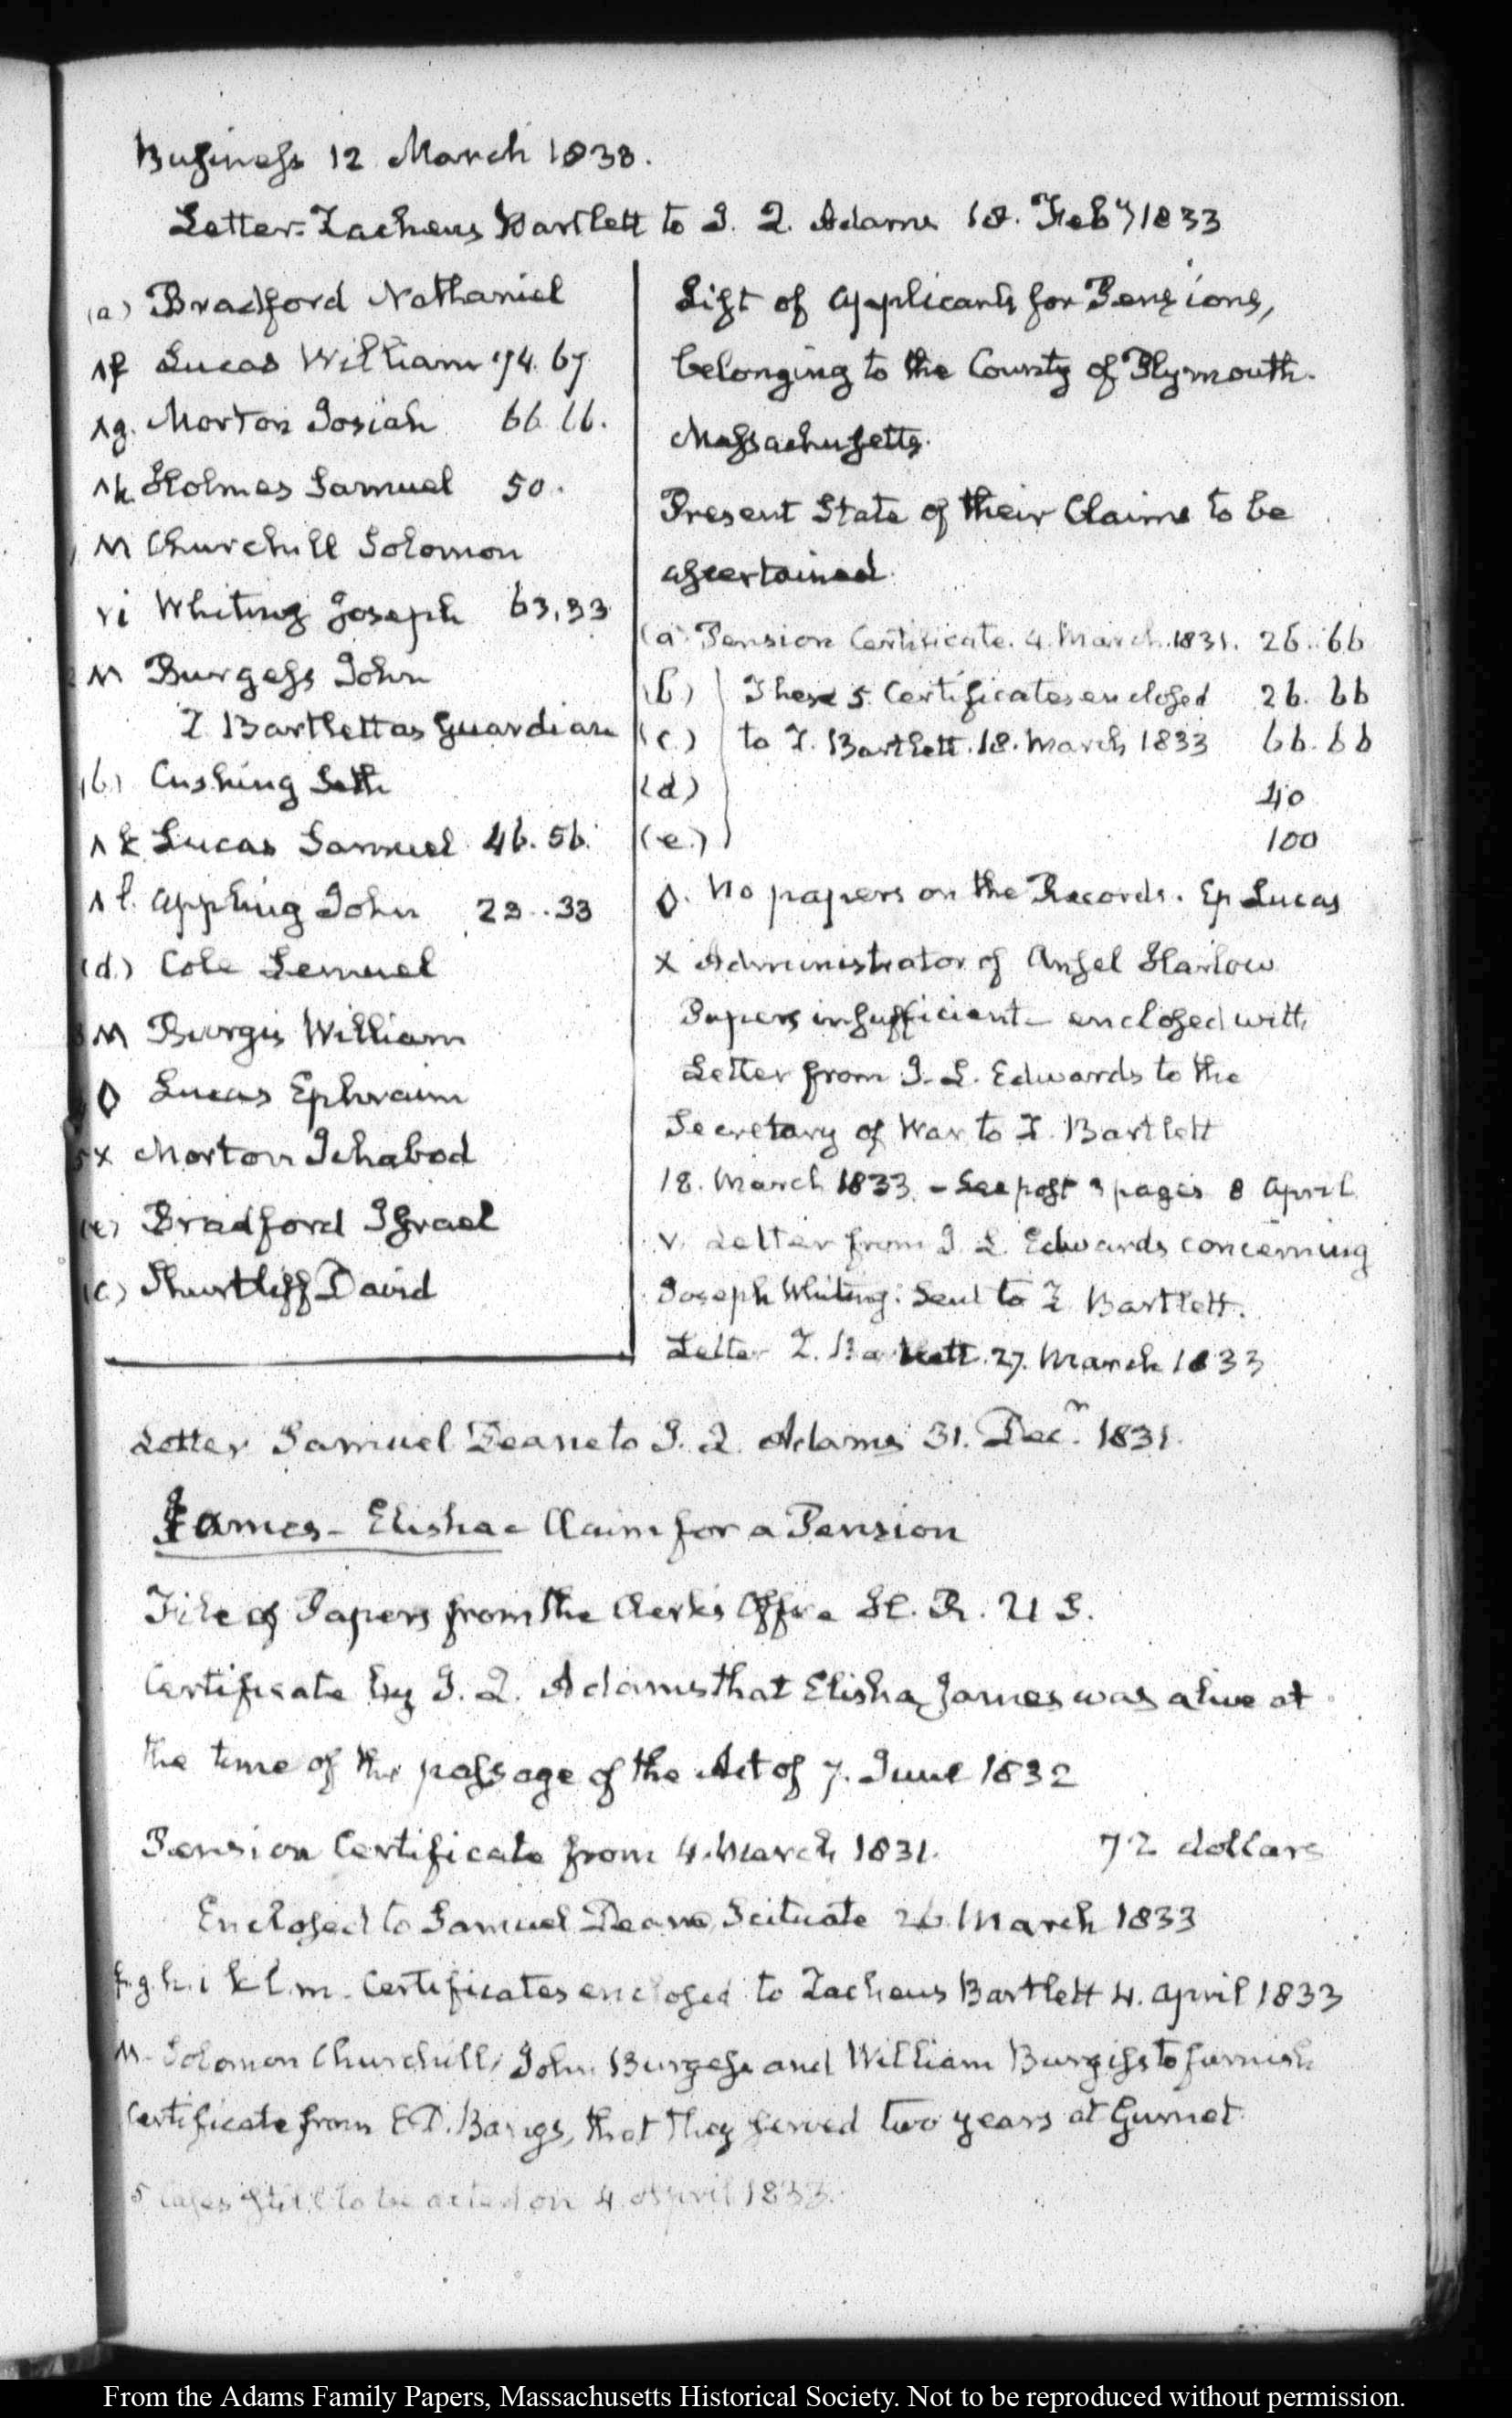 Business 12 March 1833.
Letter. Zacheus Bartlett to J. Q. Adams 18. Feby 1833
(a) Bradford Nathaniel
f Lucas William 74. 67
g. Morton Josiah 66 66.
h Holmes Samuel 50.
M Churchill Solomon
vi Whiting Joseph 63,33
M Burgess John
Z Bartlett as Guardian
(b) Cushing Seth
k Lucas Samuel 46. 56.
l. Appling John 23..33
(d.) Cole Lemuel
M Burgis William
◊ Lucas Ephraim
5 x Morton Ichabod
(e) Bradford Israel
(c) Shurtliff David
List of applicants for Pensions,
belonging to the County of Plymouth.
Massachusetts.
Present State of their Claims to be
ascertained.
(a) Pension Certificate. 4. March. 1831. 26..66
(b) These 5. Certificates enclosed 26. 66
(c) to Z. Bartlett. 18. March 1833 66. 66
(d) 40
(e.) 100
◊. No papers on the Records. Ep Lucas
x Administrator of Ansel Harlow
Papers insufficient - enclosed with
Letter from J. L. Edwards to the
Secretary of War to Z. Bartlett
18. March 1833. - See post 3 pages 8 April
v. Letter from J. L. Edwards concerning
Joseph Whiting. Sent to Z Bartlett.
Letter Z. Bartlett. 27. March 1833
Letter Samuel Deane to J. Q. Adams 31. Decr. 1831.
James - Elisha - Claim for a Pension
File of Papers from the Clerk's Office H. R. U S.
Certificate by J. Q. Adams that Elisha James was alive at
the time of the passage of the Act of 7. June 1832
Pension Certificate from 4. March 1831. 72 dollars
Enclosed to Samuel Deane, Scituate 26 March 1833
f. g. h. i k l. m. Certificates enclosed to Zacheus Bartlett 4. April 1833
M - Solomon Churchill, John Burgess and William Burgiss to furnish
Certificate from E D. Bangs, that they served two years at Gurnet.
5 Cases still to be acted on 4. April 1833.
From the Adams Family Papers, Massachusetts Historical Society. Not to be reproduced without permission.